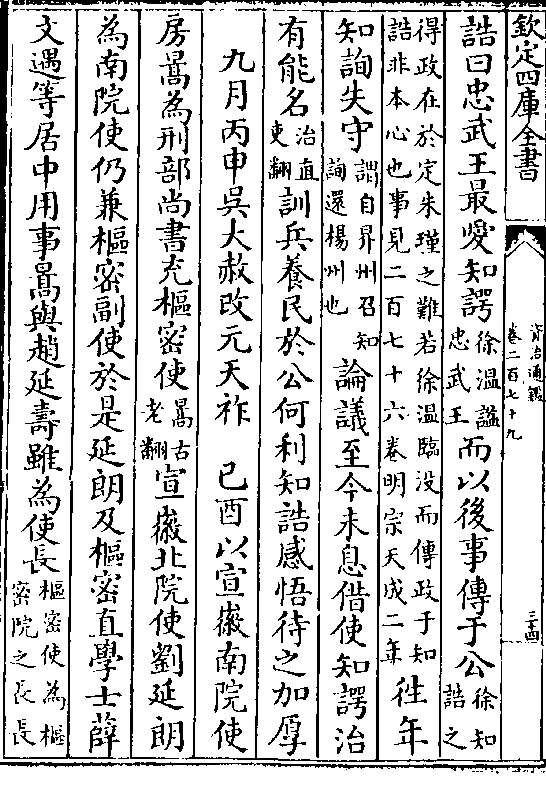 欽定四庫全書
資治通鑑
卷二百七十九
三十四
誥曰忠武王最愛知諤徐溫諡忠武王而以後事傳于公徐知誥之
得政在於定朱瑾之難若徐溫臨没而傳政于知誥非本心也事見二百七十六卷明宗天成二年往年
知詢失守謂自昇州召知詢還楊州也論議至今未息借使知諤治
有能名治直吏翻訓兵養民於公何利知誥感悟待之加厚
九月丙申吳大赦改元天祚 己酉以宣徽南院使
房暠為刑部尚書充樞密使暠古老翻宣徽北院使劉延朗
為南院使仍兼樞密副使於是延朗及樞密直學士薛
文遇等居中用事暠與趙延壽雖為使長樞密使為樞密院之長長